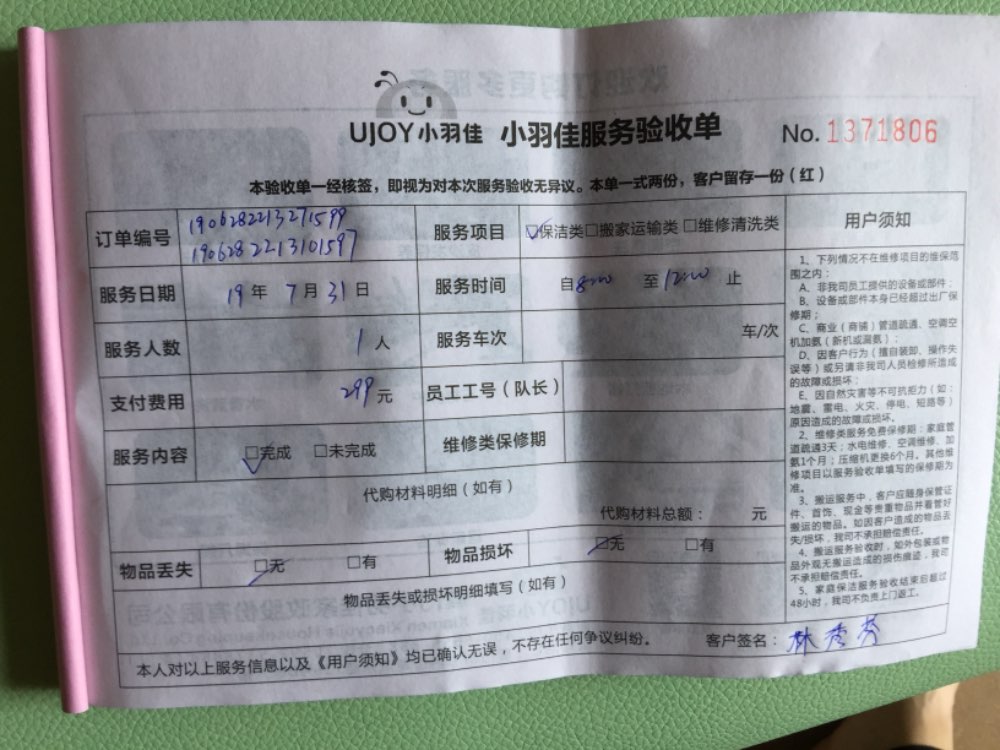 UJOY小羽佳 小羽佳服务验收单 No. 1371806
本验收单一经核签，即视为对本次服务验收无异议。本单一式两份，客户留存一份（红）
订单编号 190628221327159９
1906282213101597
服务项目 保洁类 搬家运输类 维修清洗类
服务日期 19年 7月 31日
服务时间 自8:00 至12:00 止
服务人数 1人
服务车次 车/次
支付费用 299元
员工工号（队长）
服务内容 完成 未完成
维修类保修期
代购材料明细（如有）
代购材料总额： 元
物品丢失 无 有
物品损坏 无 有
物品丢失或损坏明细填写（如有）
本人对以上服务信息以及《用户须知》均已确认无误，不存在任何争议纠纷。
客户签名：林秀芬
用户须知
1、下列情况不在维修项目的维保范
围之内：
A、非我司员工提供的设备或部件；
B、设备或部件本身已经超过出厂保
修期；
C、商业（商铺）管道疏通、空调空
机加氨（新机或漏氨）；
D、因客户行为（擅自装卸、操作失
误等）或另请非我司人员检修所造成
的故障或损坏；
E、因自然灾害等不可抗拒力（如：
地震、雷电、火灾、停电、短路等）
原因造成的故障或损坏。
2、维修类服务免费保修期：家庭管
道疏通3天；水电维修、空调维修、加
氨1个月；压缩机更换6个月。其他维
修项目以服务验收单填写的保修期为
准。
3、搬运服务中，客户应随身保管证
件、首饰、现金等贵重物品并看管好
搬运的物品。如因客户造成的物品丢
失/损坏，我司不承担赔偿责任。
4、搬运服务验收时，如外包装或物
品外观无搬运造成的损伤痕迹，我司
不承担赔偿责任。
5、家庭保洁服务验收结束后超过
48小时，我司不负责上门返工。